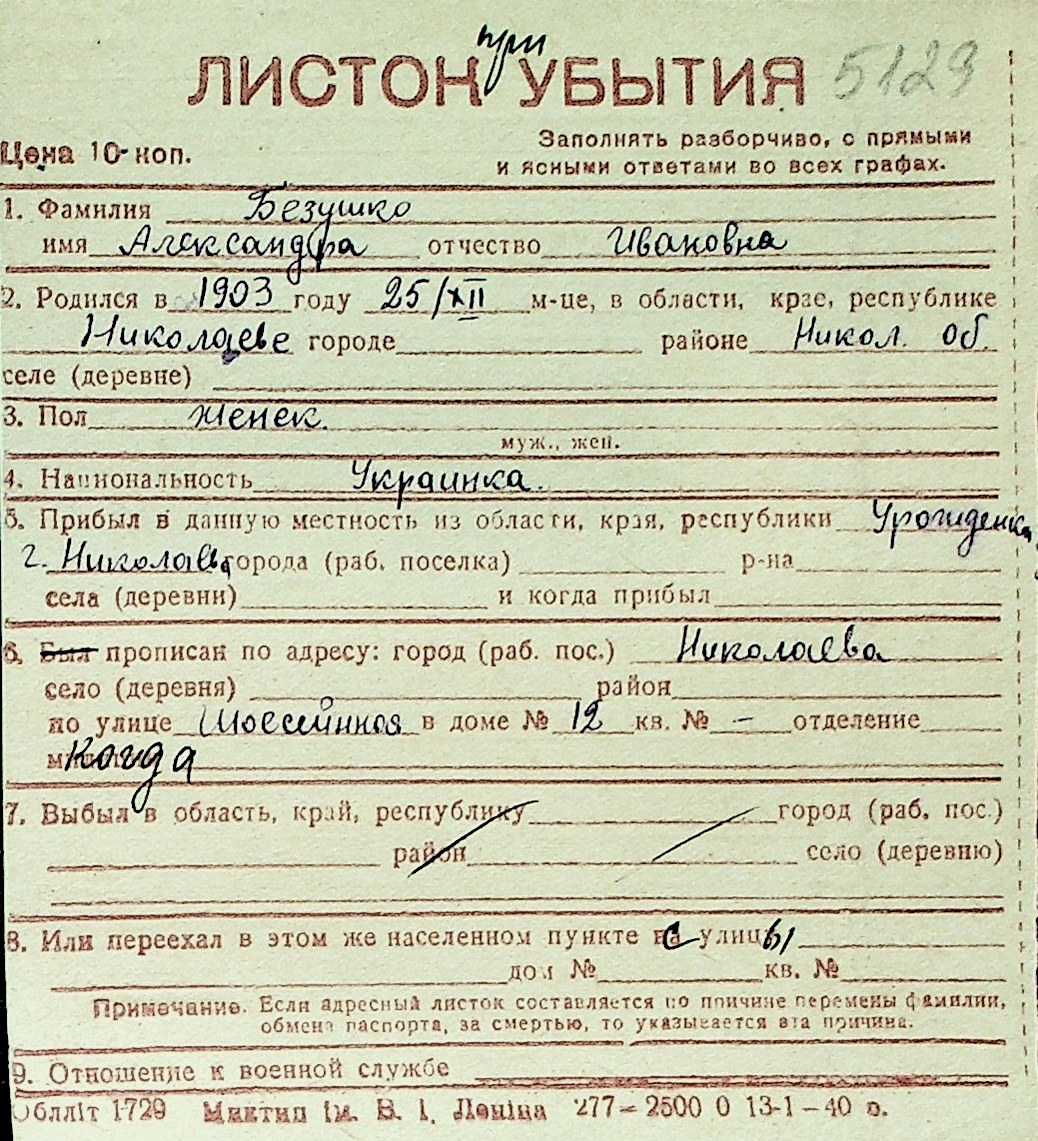 при
ЛИСТОК УБЫТИЯ 5129
Цена 10 коп.
Заполнять разборчиво, с прямыми
и ясными ответами во всех графах.
1. Фамилия Безушко
имя Александра отчество Ивановна
2. Родился в 1903 году 25/XII м-це, в области, крае, республике
Николаеве городе районе Никол. Об.
селе (деревне)
3. Пол женск.
муж., жен.
4. Национальность Украинка.
5. Прибыл в данную местность из области, края, республики Уроженка
г. Николаева города (раб. поселка) р-на
села (деревни) и когда прибыл
6. Был прописан по адресу: город (раб. пос.) Николаева
село (деревня) район
по улице Шоссейная в доме № 12 кв. № – отделение
Когда
7. Выбыл в область, край, республику город (раб. пос.)
район село (деревню)
8. Или переехал в этом же населенном пункте с улицы
дом № кв. №
Примечание. Если адресный листок составляется по причине перемены фамилии,
обмена паспорта, за смертью, то указывается эта причина.
9. Отношение к военной службе
Обллiт 1729 Миктип iм. В. I. Ленiна 277–2500 0 13-1–40 р.